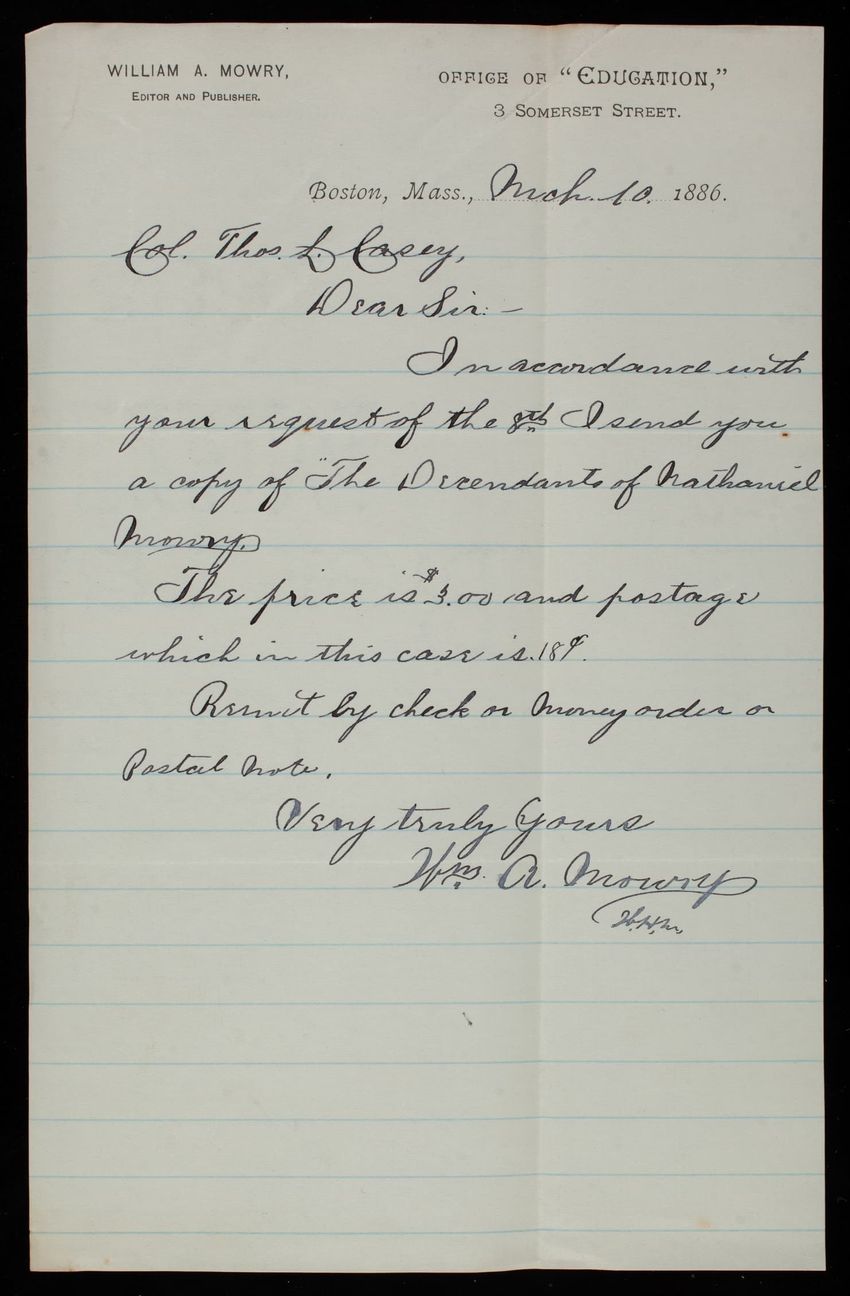 WILLIAM A. MOWRY,
EDITOR AND PUBLISHER.
OFFICE OF "EDUCATION,"
3 SOMERSET STREET.
Boston, Mass., Mch. 10. 1886.
Col. Thos. L. Casey,
Dear Sir:-
In accordance with
your request of the 8th I send you
a copy of "The Decendants of Nathaniel
Mowry.
The price is $3.00 and postage
which in this case is .18¢.
Remit by check or Money order or
Postal Note.
Very truly Yours
Wm. A. Mowry